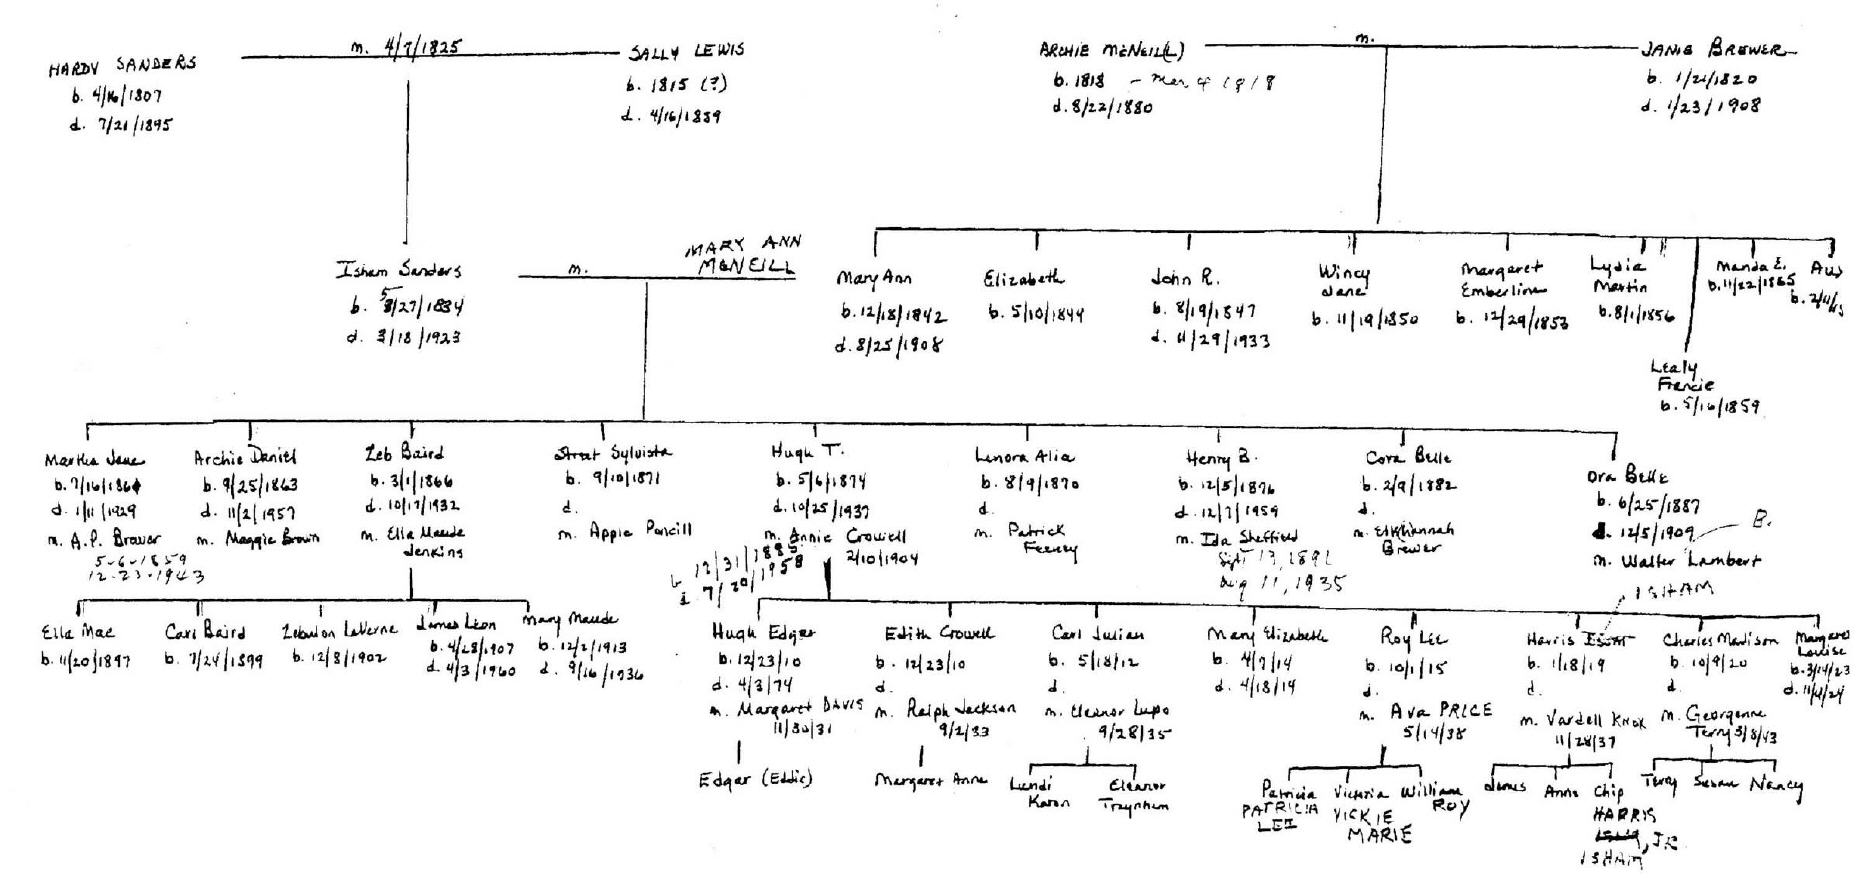 HARDY SANDERS
b. 4/16/1807
d. 7/21/1895
m. 4/7/1825
SALLY LEWIS
b. 1815 (?)
d. 4/16/1889
ARCHIE MCNEIL(L)
b. 1818 - Mar 4 1818
d. 8/22/1880
m.
JANIE BREWER
b. 1/21/1820
d. 1/23/1908
Isham Sanders
b. 5/27/1834
d. 3/18/1923
m.
MARY ANN
MCNEILL
Mary Ann
b. 12/18/1842
d. 8/25/1908
Elizabeth
b. 5/10/1844
John R.
b. 8/19/1847
d. 11/29/1933
Wincy
Jane
b. 11/19/1850
Margaret
Emberline
b. 12/29/1853
Lydia
Martin
b. 8/1/1856
Lealy
Francie
b. 5/16/1859
Manda E.
b. 11/22/1865
Martha Jane
b. 7/16/186
d. 1/11/1929
m. A.P. Brewer
5-6-1859
12-23-1943
Archie Daniel
b. 9/25/1863
d. 11/2/1957
m. Maggie Brown
Zeb Baird
b. 3/1/1866
d. 10/17/1932
m. Ella Maude
Jenkins
Street Sylvista
b. 9/10/1871
d.
m. Appie Poncill
Hugh T.
b. 5/6/1874
d. 10/25/1937
m. Annie Crowell
2/10/1904
b 12/31/1885
d 7/20/1958
Lenora Alia
b. 8/9/1870
d.
m. Patrick
Feeney
Henry B.
b. 12/5/1876
d. 12/7/1959
m. Ida Sheffield
Sept 13, 1892
Aug 11, 1935
Cora Belle
b. 2/9/1882
d.
m. Elkhannah
Brewer
Ora Belle
b. 6/25/1887
d. 12/5/1909
B.
m. Walter Lambert
ISHAM
Ella Mae
b. 11/20/1897
Carl Baird
b. 7/24/1899
Zebulon LaVerne
b. 12/8/1902
James Leon
b. 4/28/1907
d. 4/3/1960
Mary Maude
b. 12/2/1913
d. 9/16/1936
Hugh Edgar
b. 12/23/10
d. 4/3/74
m. Margaret DAVIS
11/30/31
Edith Crowell
b. 12/23/10
d.
m. Ralph Jackson
9/2/33
Carl Julian
b. 5/18/12
d.
m. Eleanor Lupo
9/28/35
Mary Elizabeth
b. 4/7/14
d. 4/18/14
Roy Lee
b. 10/1/15
d.
m. Ava PRICE
5/14/38
Harris
b. 1/18/19
d.
m. Vardell KNOX
11/28/37
Charles Madison
b. 10/9/20
d.
m. Georgenne
Terry 3/8/43
Margaret
Louise
b. 3/14/23
d. 11/4/24
Edgar (Eddie)
Margaret Anne
Lundi
Karon
Eleanor
Traynham
Patricia
PATRICIA
LEE
Victoria
VICKIE
MARIE
William
ROY
James
Anne
Chip
HARRIS
, JR.
ISHAM
Terry
Susan
Nancy